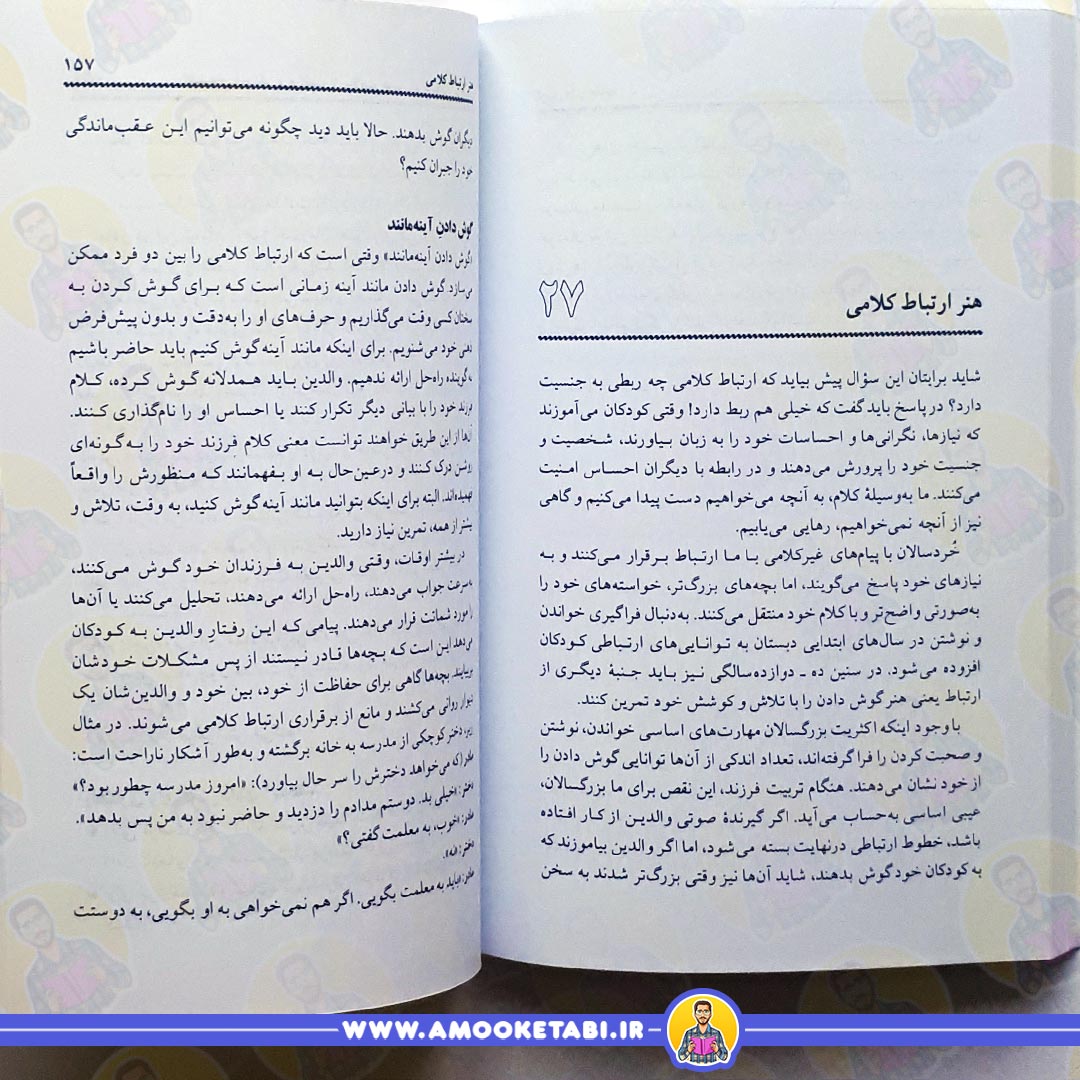 هنر ارتباط کلامی ۲۷
شاید برایتان این سؤال پیش بیاید که ارتباط کلامی چه ربطی به جنسیت
دارد؟ در پاسخ باید گفت که خیلی هم ربط دارد! وقتی کودکان می‌آموزند
که نیازها، نگرانی‌ها و احساسات خود را به زبان بیاورند، شخصیت و
جنسیت خود را پرورش می‌دهند و در رابطه با دیگران احساس امنیت
می‌کنند. ما به‌وسیلهٔ کلام، به آنچه می‌خواهیم دست پیدا می‌کنیم و گاهی
نیز از آنچه نمی‌خواهیم، رهایی می‌یابیم.
خُردسالان با پیام‌های غیرکلامی با ما ارتباط برقرار می‌کنند و به
نیازهای خود پاسخ می‌گویند، اما بچه‌های بزرگ‌تر، خواسته‌های خود را
به‌صورتی واضح‌تر و با کلام خود منتقل می‌کنند. به‌دنبال فراگیری خواندن
و نوشتن در سال‌های ابتدایی دبستان به توانایی‌های ارتباطی کودکان
افزوده می‌شود. در سنین ده ـ دوازده‌سالگی نیز باید جنبهٔ دیگری از
ارتباط یعنی هنر گوش دادن را با تلاش و کوشش خود تمرین کنند.
با وجود اینکه اکثریت بزرگسالان مهارت‌های اساسی خواندن، نوشتن
و صحبت کردن را فرا گرفته‌اند، تعداد اندکی از آن‌ها توانایی گوش دادن را
از خود نشان می‌دهند. هنگام تربیت فرزند، این نقص برای ما بزرگسالان،
عیبی اساسی به‌حساب می‌آید. اگر گیرندهٔ صوتی والدین از کار افتاده
باشد، خطوط ارتباطی درنهایت بسته می‌شود، اما اگر والدین بیاموزند که
به کودکان خود گوش بدهند، شاید آن‌ها نیز وقتی بزرگ‌تر شدند به سخن
هنر ارتباط کلامی ۱۵۷
دیگران گوش بدهند. حالا باید دید چگونه می‌توانیم این عقب‌ماندگی
خود را جبران کنیم؟
گوش دادنِ آینه‌مانند
«گوش دادن آینه‌مانند» وقتی است که ارتباط کلامی را بین دو فرد ممکن
می‌سازد گوش دادن مانند آینه زمانی است که برای گوش کردن به
سخنان کسی وقت می‌گذاریم و حرف‌های او را به‌دقت و بدون پیش‌فرض
ذهنی خود می‌شنویم. برای اینکه مانند آینه گوش کنیم باید حاضر باشیم
به گوینده راه‌حل ارائه ندهیم. والدین باید همدلانه گوش کرده، کلام
فرزند خود را با بیانی دیگر تکرار کنند یا احساس او را نام‌گذاری کنند.
آن‌ها از این طریق خواهند توانست معنی کلام فرزند خود را به گونه‌ای
روشن درک کنند و درعین‌حال به او بفهمانند که منظورش را واقعاً
فهمیده‌اند. البته برای اینکه بتوانید مانند آینه گوش کنید، به وقت، تلاش و
بیشتر از همه، تمرین نیاز دارید.
در بیشتر اوقات، وقتی والدین به فرزندان خود گوش می‌کنند،
به‌سرعت جواب می‌دهند، راه‌حل ارائه می‌دهند، تحلیل می‌کنند یا آن‌ها
را مورد شماتت قرار می‌دهند. پیامی که این رفتارِ والدین به کودکان
می‌دهد این است که بچه‌ها قادر نیستند از پس مشکلات خودشان
بربیایند. بچه‌ها گاهی برای حفاظت از خود، بین خود و والدین‌شان یک
دیوار روانی می‌کشند و مانع از برقراری ارتباط کلامی می‌شوند. در مثال
زیر، دختر کوچکی از مدرسه به خانه برگشته و به‌طور آشکار ناراحت است:
مادر (که می‌خواهد دخترش را سر حال بیاورد): «امروز مدرسه چطور بود؟»
دختر: «خیلی بد. دوستم مدادم را دزدید و حاضر نبود به من پس بدهد».
مادر: «خوب، به معلمت گفتی؟»
دختر: «نه».
مادر: «باید به معلمت بگویی. اگر هم نمی‌خواهی به او بگویی، به دوستت
WWW.AMOOKETABI.IR